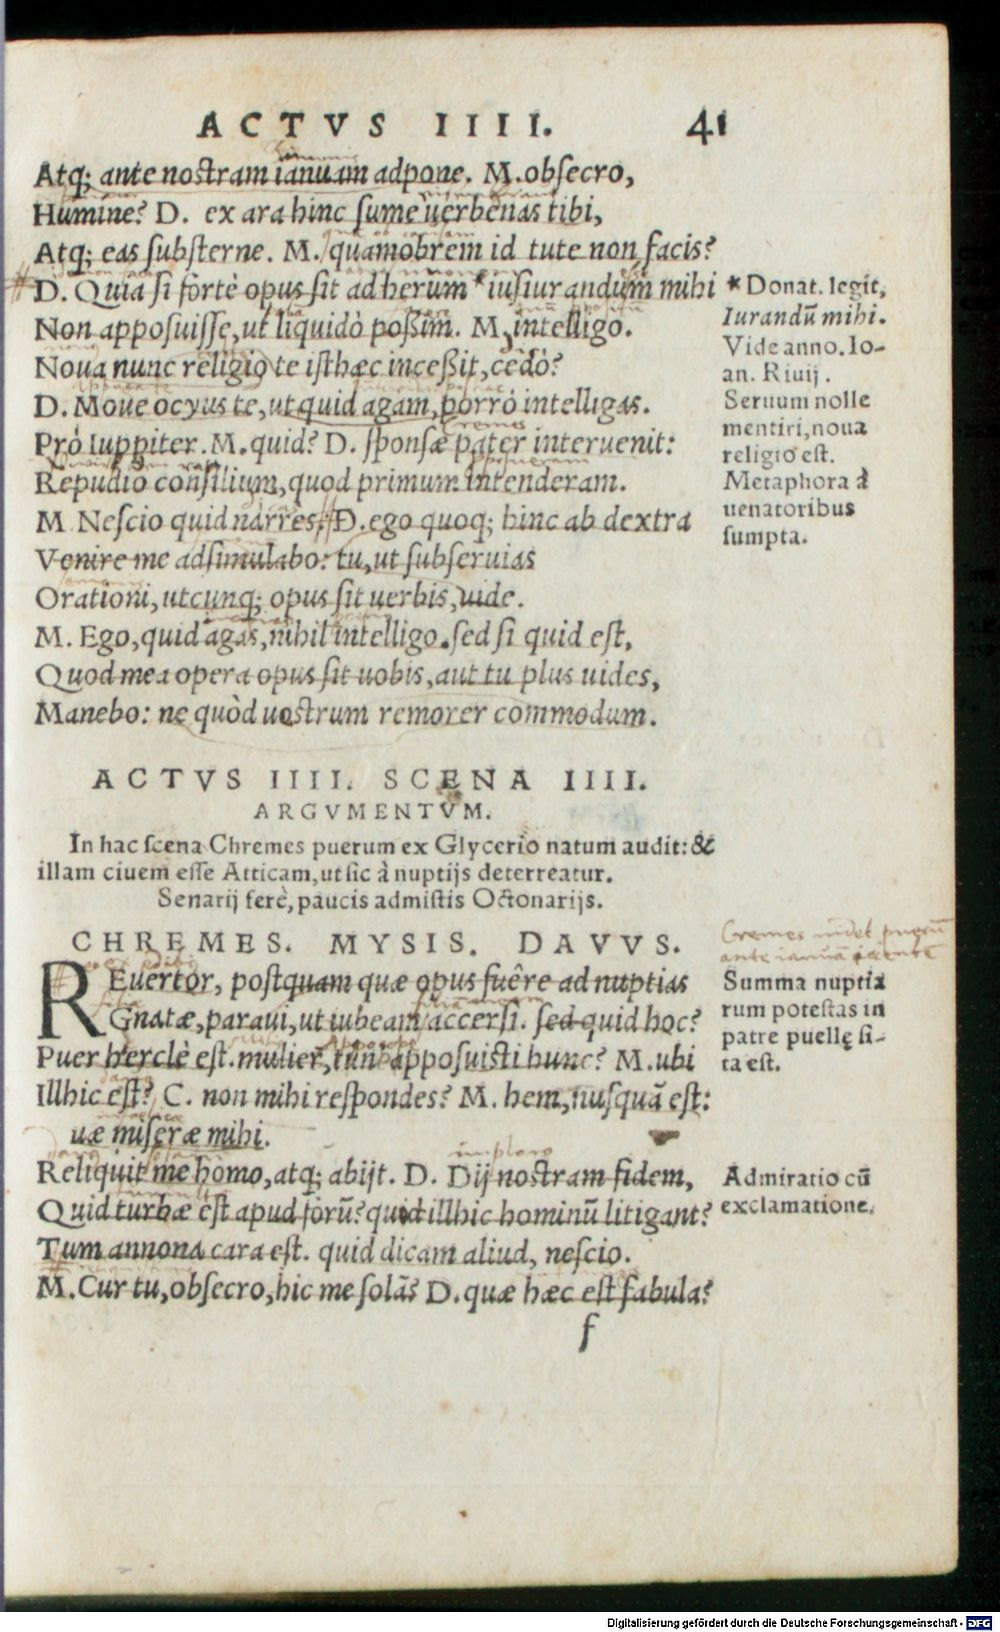 ACTVS IIII. 41
Atq; ante nostram ianuam adpone. M. obsecro,
Humine? D. ex ara hinc sume uerbenas tibi,
Atq; eas substerne. M. quamobrem id tute non facis?
D. Quia si fortè opus sit ad herum * iusiurandum mihi
Non apposuisse, ut liquidò poßim. M. intelligo.
Noua nunc religio te isthæc inceßit, cedò?
D. Moue ocyus te, ut quid agam, porrò intelligas.
Prò Iuppiter. M. quid? D. sponsæ pater interuenit:
Repudio consilium, quod primum intenderam.
M. Nescio quid narres. D. ego quoq; hinc ab dextra
Venire me adsimulabo: tu, ut subseruias
Orationi, utcunq; opus sit uerbis, uide.
M. Ego, quid agas, nihil intelligo. sed si quid est,
Quod mea opera opus sit uobis, aut tu plus uides,
Manebo: ne quòd uostrum remorer commodum.
* Donat. legit,
Iurandū mihi.
Vide anno. Io-
an. Riuij.
Seruum nolle
mentiri, noua
religio est.
Metaphora à
uenatoribus
sumpta.
ACTVS IIII. SCENA IIII.
ARGVMENTVM.
In hac scena Chremes puerum ex Glycerio natum audit: &
illam ciuem esse Atticam, ut sic à nuptijs deterreatur.
Senarij ferè, paucis admistis Octonarijs.
CHREMES. MYSIS. DAVVS.
REuertor, postquam quæ opus fuêre ad nuptias
Gnatæ, paraui, ut iubeam accersi. sed quid hoc?
Puer herclè est. mulier, tun' apposuisti hunc? M. ubi
Illhic est? C. non mihi respondes? M. hem, nusquā est:
uæ miseræ mihi.
Reliquit me homo, atq; abijt. D. Dij nostram fidem,
Quid turbæ est apud forū? quid illhic hominū litigant?
Tum annona cara est. quid dicam aliud, nescio.
M. Cur tu, obsecro, hic me solā? D. quæ hæc est fabula?
Cremes uidet puerū
ante ianuā
Summa nuptia
rum potestas in
patre puellę si-
ta est.
Admiratio cū
exclamatione.
f
Digitalisierung gefördert durch die Deutsche Forschungsgemeinschaft - DFG